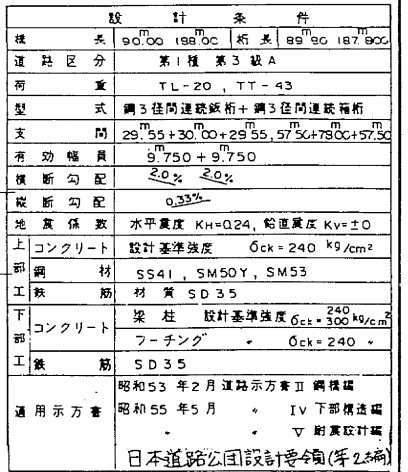 設計条件
橋長 90.00m 198.00m 桁長 89.90m 187.800m
道路区分 第1種 第3級A
荷重 TL-20, TT-43
型式 鋼3径間連続鈑桁+鋼3径間連続箱桁
支間 29.55+30.00+29.55, 57.50+73.00+57.50
有効幅員 9.750m + 9.750m
横断勾配 2.0% 2.0%
縦断勾配 0.33%
地震係数 水平震度 KH=0.24, 鉛直震度 Kv=±0
上部工 コンクリート 設計基準強度 σck=240 kg/cm2
鋼材 SS41, SM50Y, SM53
鉄筋 材質 SD35
下部工 コンクリート 梁柱 設計基準強度 σck=240 300 kg/cm2
フーチング 〃 σck=240 〃
鉄筋 SD35
適用示方書 昭和53年2月 道路示方書 II 鋼橋編
昭和55年5月 〃 IV 下部構造編
〃 〃 V 耐震設計編
日本道路公団設計要領(第2編)